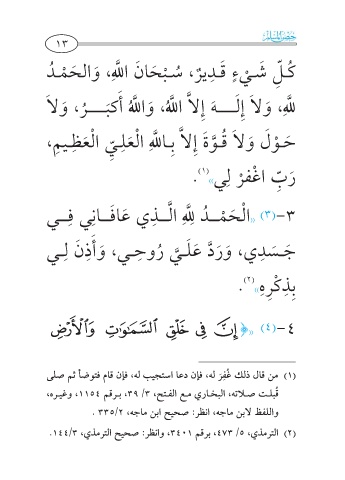 حصن المسلم
١٣
كُلِّ شَيْءٍ قَدِيرٌ، سُبْحَانَ اللَّهِ، وَالحَمْدُ
للَّهِ، وَلاَ إِلَهَ إِلاَّ اللَّهُ، وَاللَّهُ أَكبَرُ، وَلاَ
حَوْلَ وَلاَ قُوَّةَ إِلاَّ بِاللَّهِ العَلِيِّ العَظِيمِ،
رَبِّ اغْفِرْ لِي»(١).
٣-(٣) «الْحَمْدُ لِلَّهِ الَّذِي عَافَانِي فِي
جَسَدِي، وَرَدَّ عَلَيَّ رُوحِي، وَأَذِنَ لِي
بِذِكْرِهِ»(٢).
٤-(٤) ﴿إِنَّ فِي خَلْقِ السَّمَاوَاتِ وَالْأَرْضِ
(١) من قال ذلك غُفِرَ له، فإن دعا استجيب له، فإن قام فتوضأ ثم صلى
قُبلت صلاته، البخاري مع الفتح، ٣/ ٣٩، برقم ١١٥٤، وغيره،
واللفظ لابن ماجه، انظر: صحيح ابن ماجه، ٢/ ٣٣٥.
(٢) الترمذي، ٥/ ٤٧٣، برقم ٣٤٠١، وانظر: صحيح الترمذي، ٣/ ١٤٤.